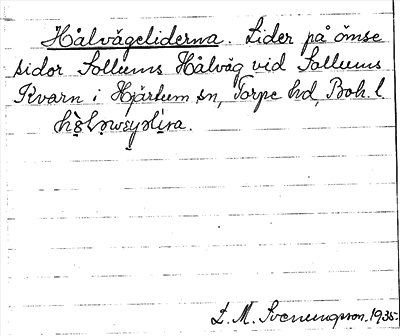 Hålvägeliderna. Lider på ömse
sidor Sollums Hålväg vid Sollums
Kvarn i Hjärtum sn, Torpe hd, Boh. l.
L. M. Svenungsson. 1935.